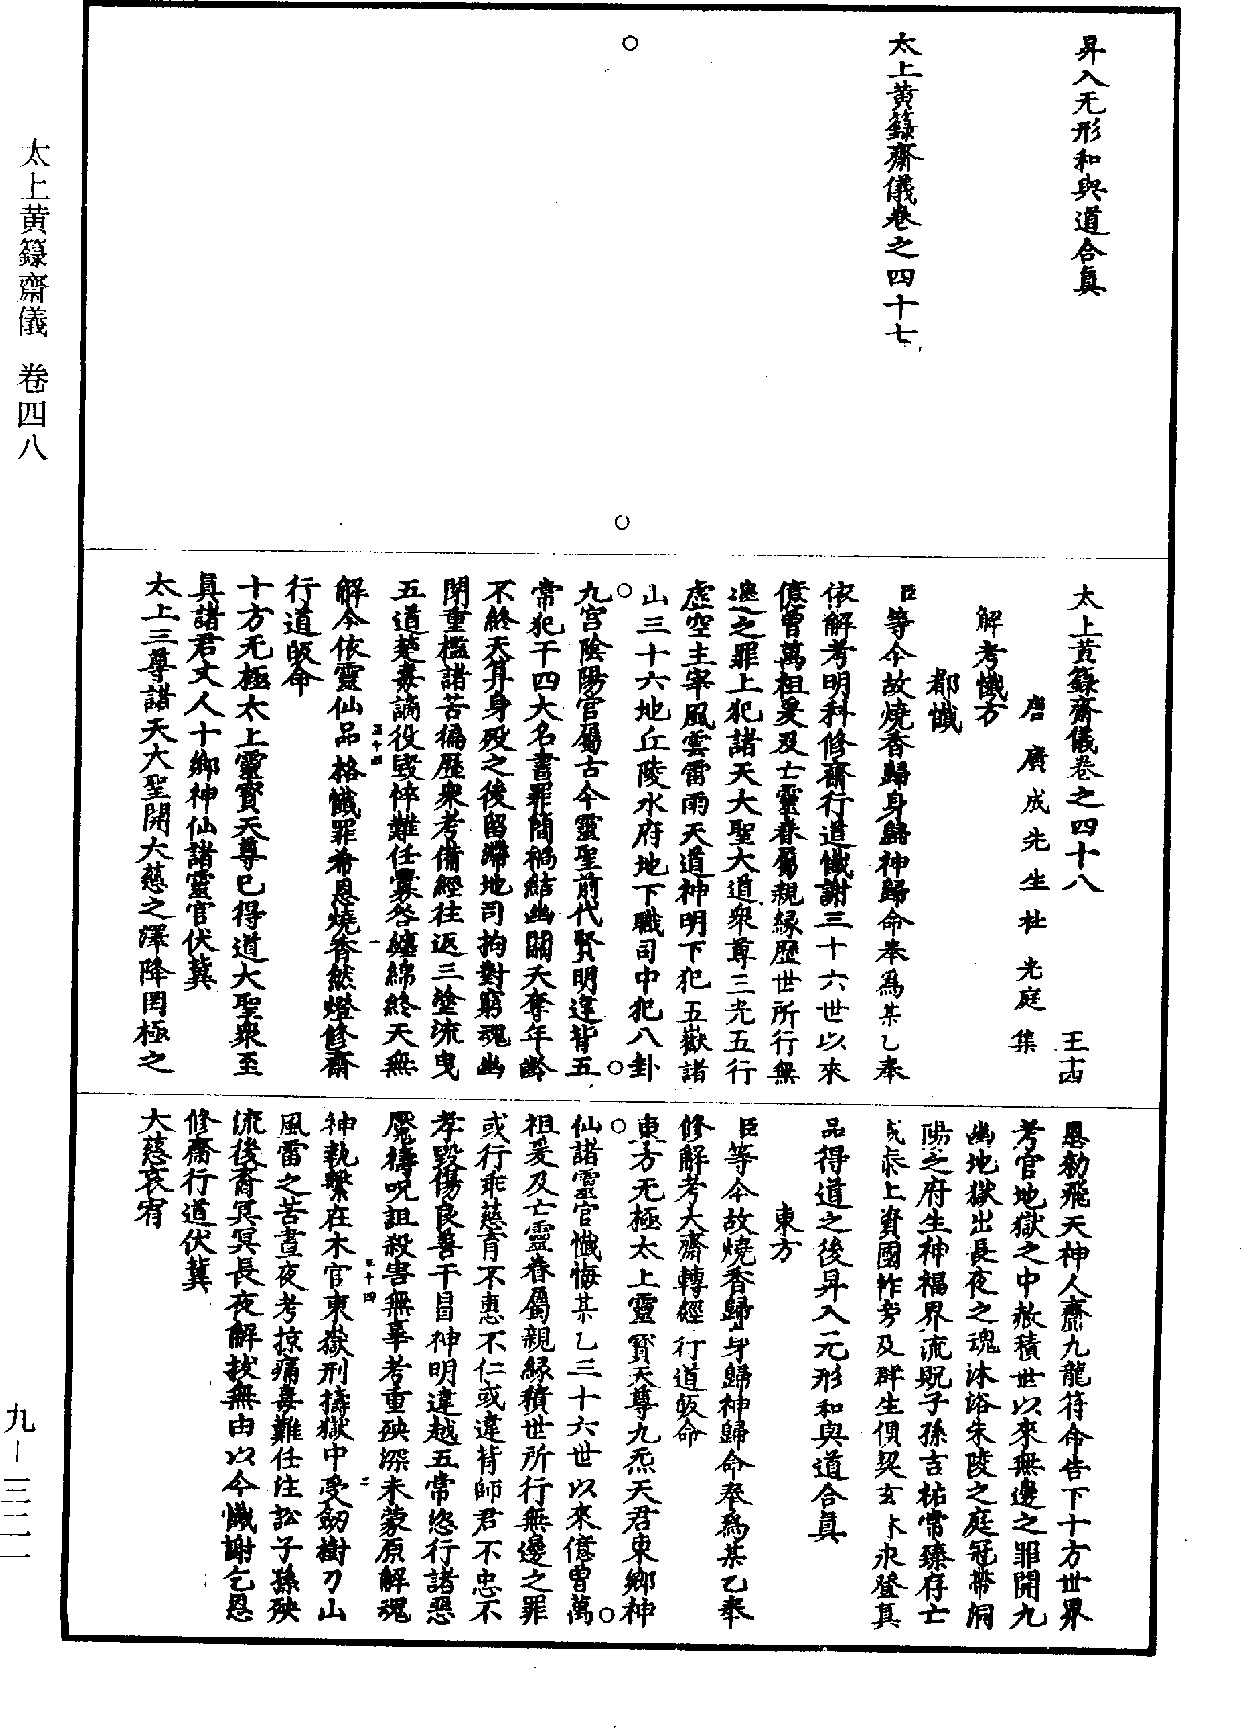 昇入无形和與道合眞
太上黃籙齋儀卷之四十七
太上黃籙齋儀卷之四十八 王十四
唐廣成先生杜光庭集
解考懺方
都懺
臣等今故燒香歸身歸神歸命奉爲某乙奉
依解考明科修齋行道懺謝三十六世以來
億曾萬祖爰及亡靈眷屬親緣歷世所行無
邊之罪上犯諸天大聖大道衆尊三光五行
虛空主宰風雲雷雨天道神明下犯五嶽諸
山三十六地丘陵水府地下職司中犯八卦
九宮陰陽官屬古今靈聖前代賢明違背五
常犯干四大名書罪簡禍結幽關夭奪年齡
不終天算身歿之後留滯地司拘對窮魂幽
閉重檻諸苦徧歷衆考備經往返三塗流曳
五道楚毒謫役毀悴難任釁咎纏綿終天無
解今依靈仙品格懺罪希恩燒香然燈修齋
行道皈命
十方无極太上靈寶天尊已得道大聖衆至
眞諸君丈人十鄉神仙諸靈官伏冀
太上三尊諸天大聖開大慈之澤降罔極之
恩勑飛天神人齋九龍符命告下十方世界
考官地獄之中赦積世以來無邊之罪開九
幽地獄出長夜之魂沐浴朱陵之庭冠帶洞
陽之府生神福界流貺子孫吉祐常臻存亡
咸泰上資國祚旁及群生俱契玄休永登眞
品得道之後昇入无形和與道合眞
東方
臣等今故燒香歸身歸神歸命奉爲某乙奉
修解考大齋轉經行道皈命
東方无極太上靈寶天尊九炁天君東鄉神
仙諸靈官懺悔某乙三十六世以來億曾萬
祖爰及亡靈眷屬親緣積世所行無邊之罪
或行乖慈育不惠不仁或違背師君不忠不
孝毀傷良善干冒神明違越五常恣行諸惡
魘禱呪詛殺害無辜考重殃深未蒙原解魂
神執繫在木官東嶽刑擣獄中受劒樹刀山
風雷之苦晝夜考掠痛毒難任注訟子孫殃
流後裔冥冥長夜解拔無由以今懺謝乞恩
修齋行道伏冀
大慈哀宥
太上黃籙齋儀 卷四八
九—三二一